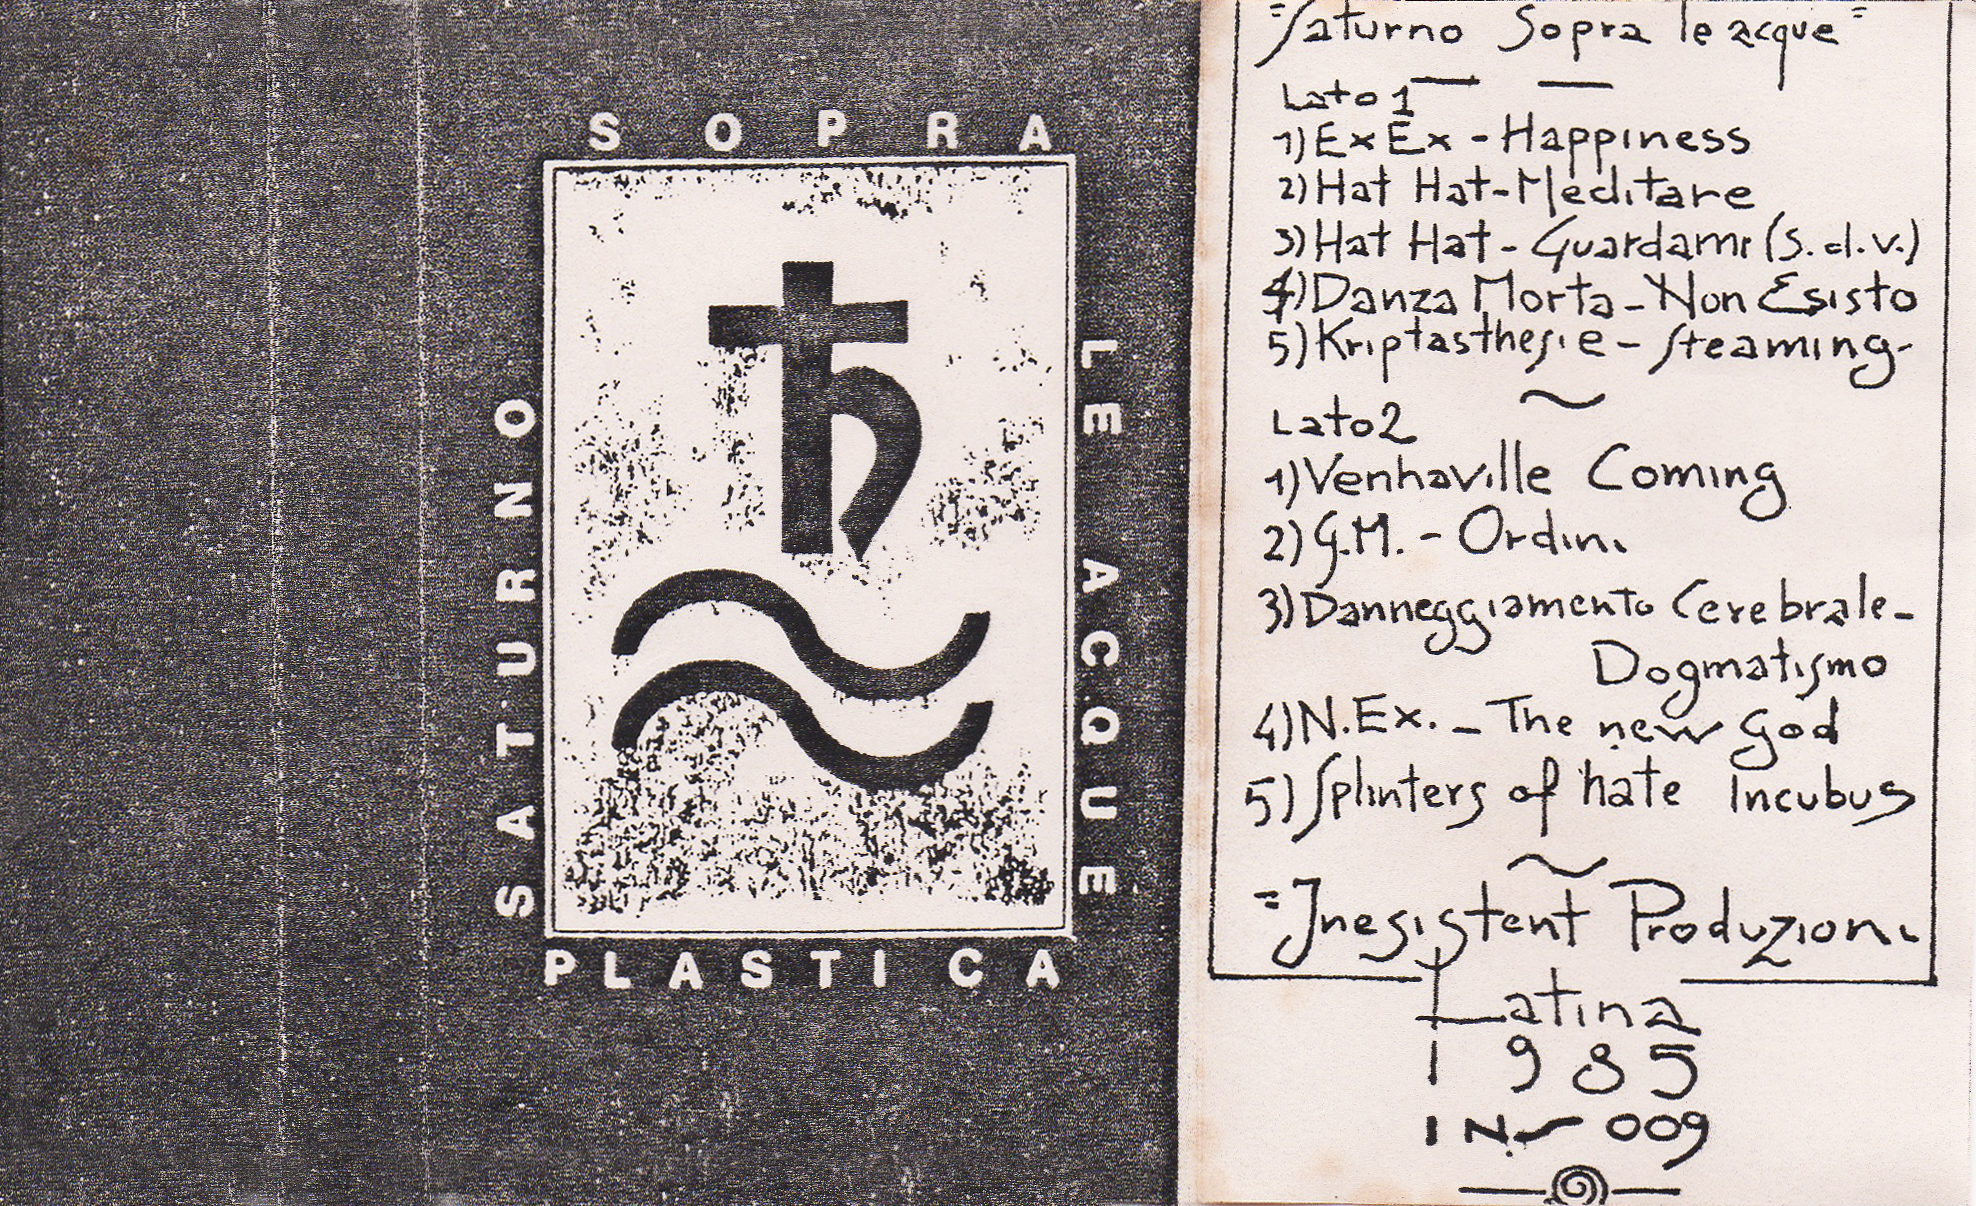 SATURNO
SOPRA
LE ACQUE
PLASTICA
"Saturno Sopra le acque"
Lato 1
1) Ex Ex - Happiness
2) Hat Hat - Meditare
3) Hat Hat - Guardami (s.d.v.)
4) Danza Morta - Non Esisto
5) Kriptasthesie - Steaming -
~
Lato 2
1) Venhaville Coming
2) G.M. - Ordini
3) Danneggiamento Cerebrale -
Dogmatismo
4) N.Ex. - The new God
5) Splinters of hate Incubus
~
=Inesistent Produzioni
Latina
1985
INS 009